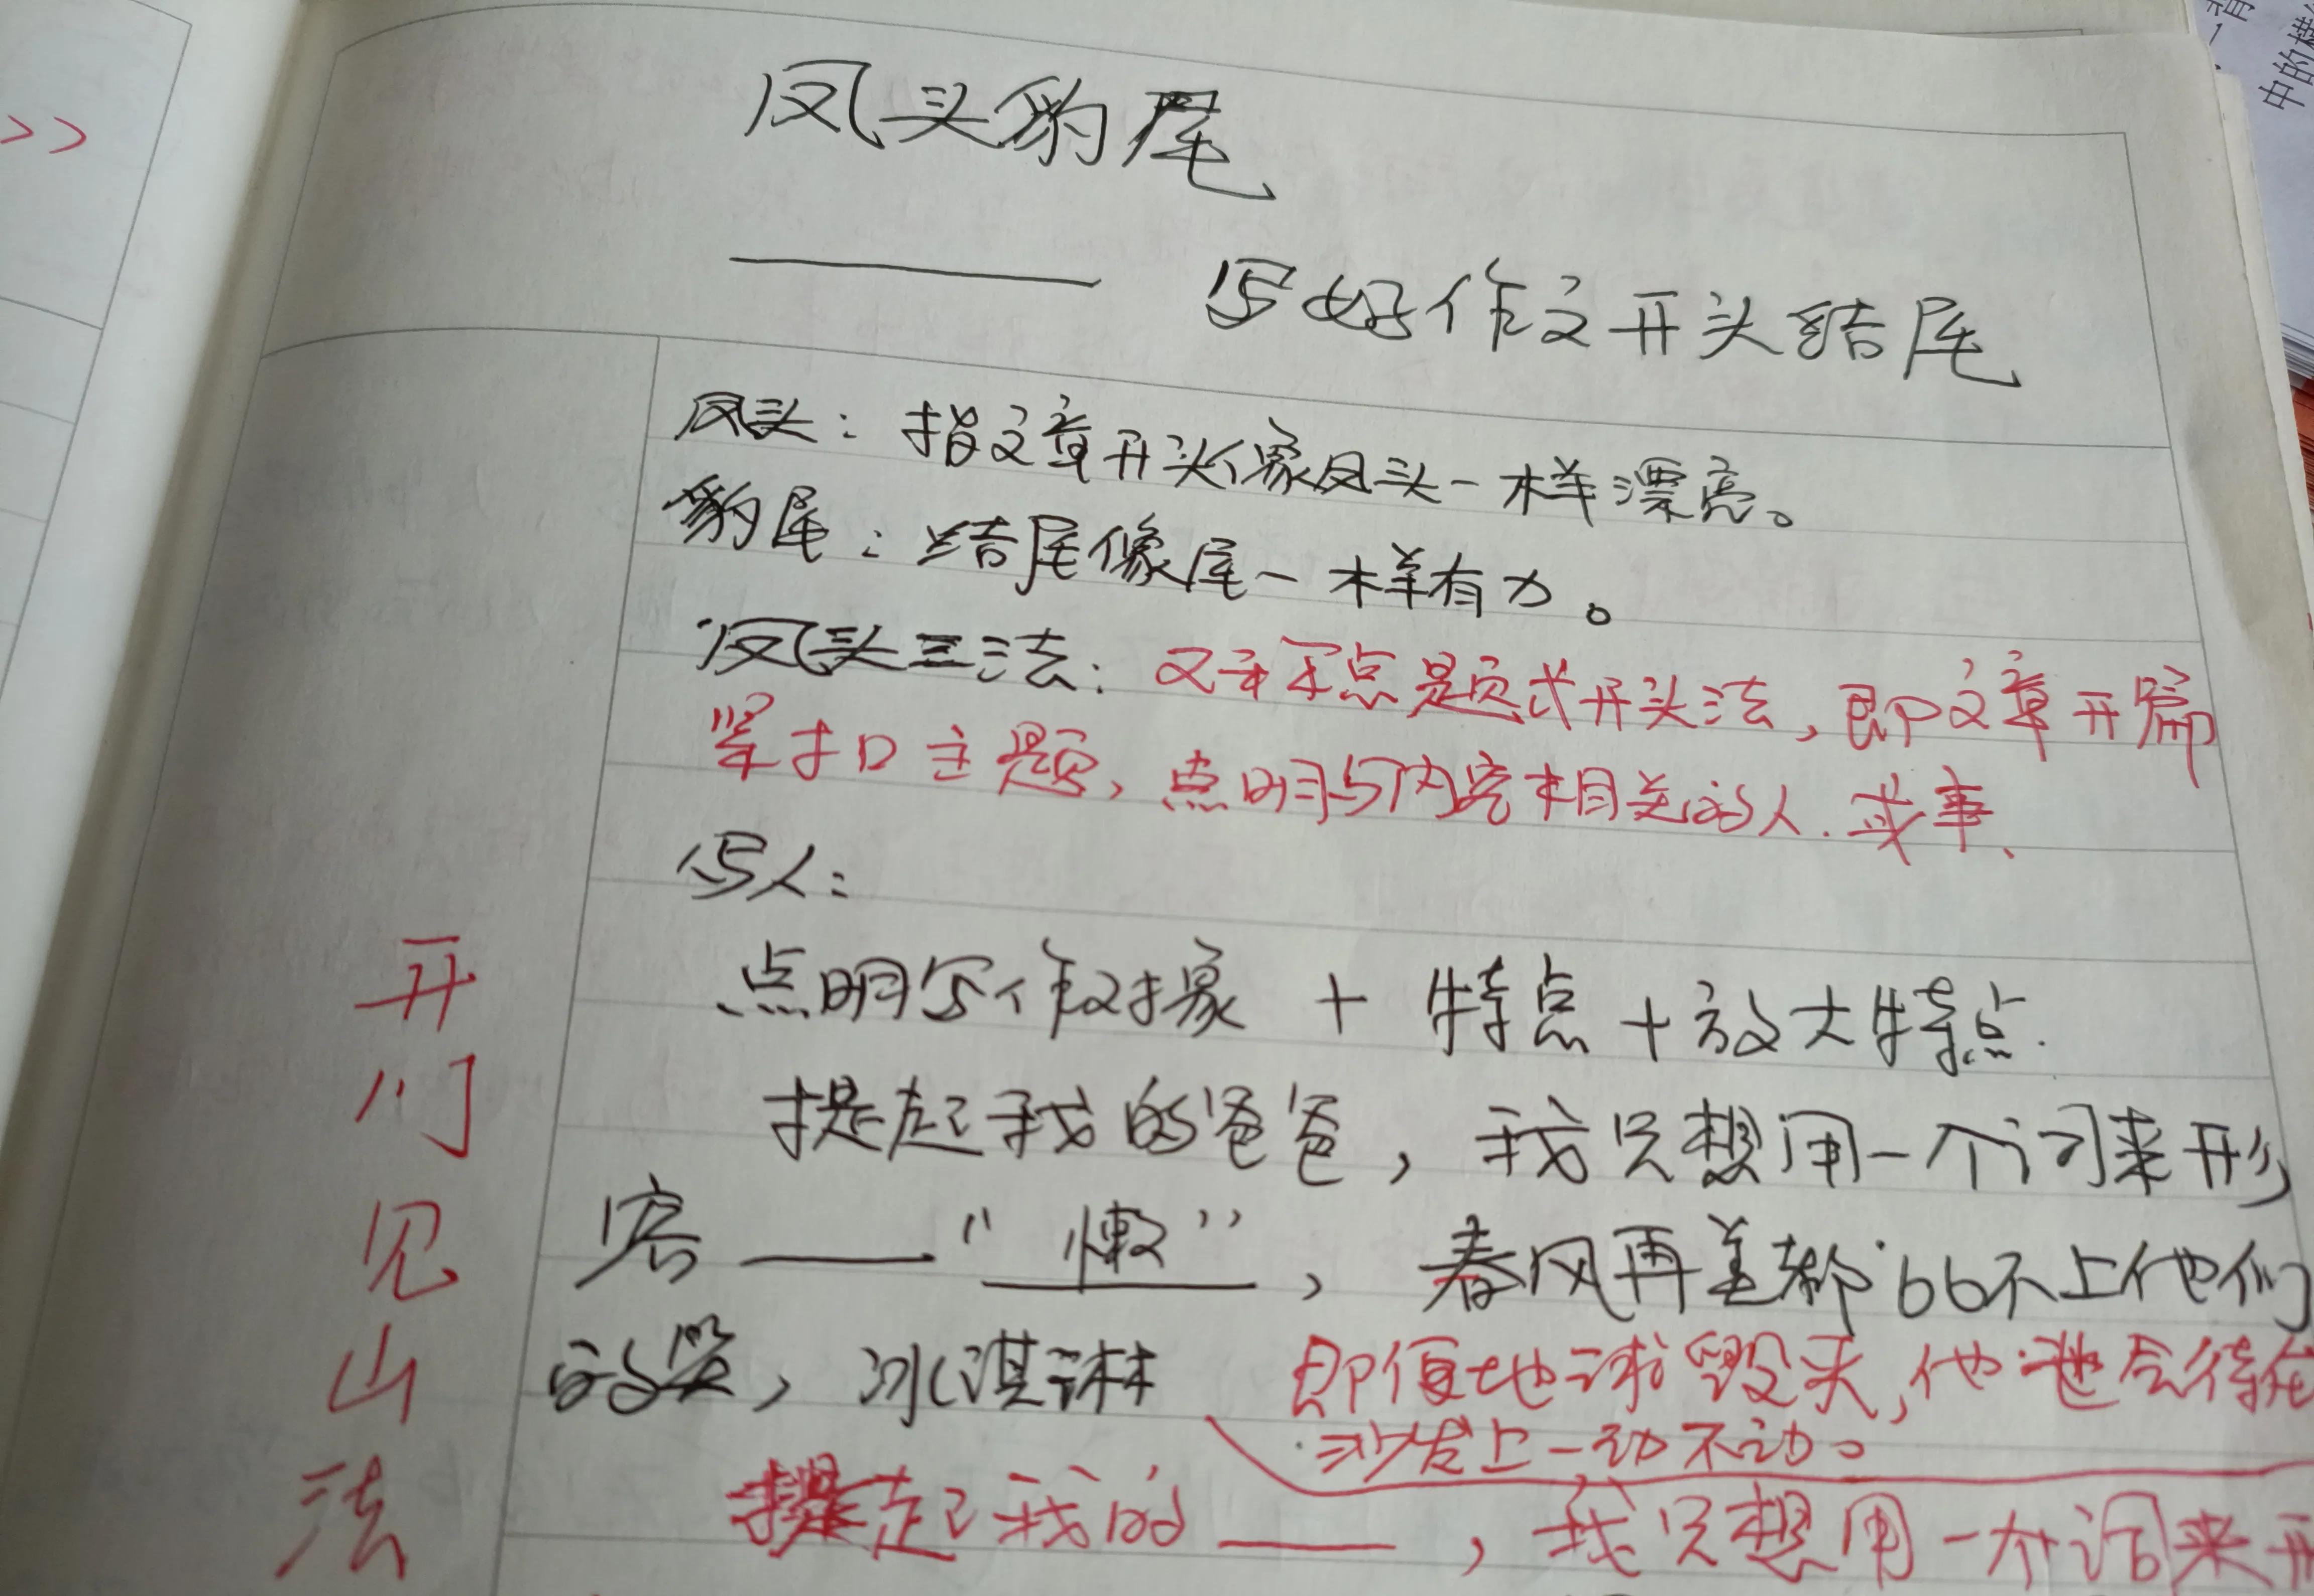 凤头豹尾
—— 写好作文开头结尾
凤头：指文章开头像凤头一样漂亮。
豹尾：结尾像尾一样有力。
凤头三法：又称点题式开头法，即文章开篇
紧扣主题，点明与内容相关的人.或事、
写人：
点明写作对象 + 特点 + 放大特点.
提起我的爸爸，我只想用一个词来形
容 —— “懒”，春风再美都比不上他们
的笑，冰淇淋 即便地球毁灭，他也会待在
沙发上一动不动。
提起我的 ——，我只想用一个词来形
开门见山法
>>
中的横